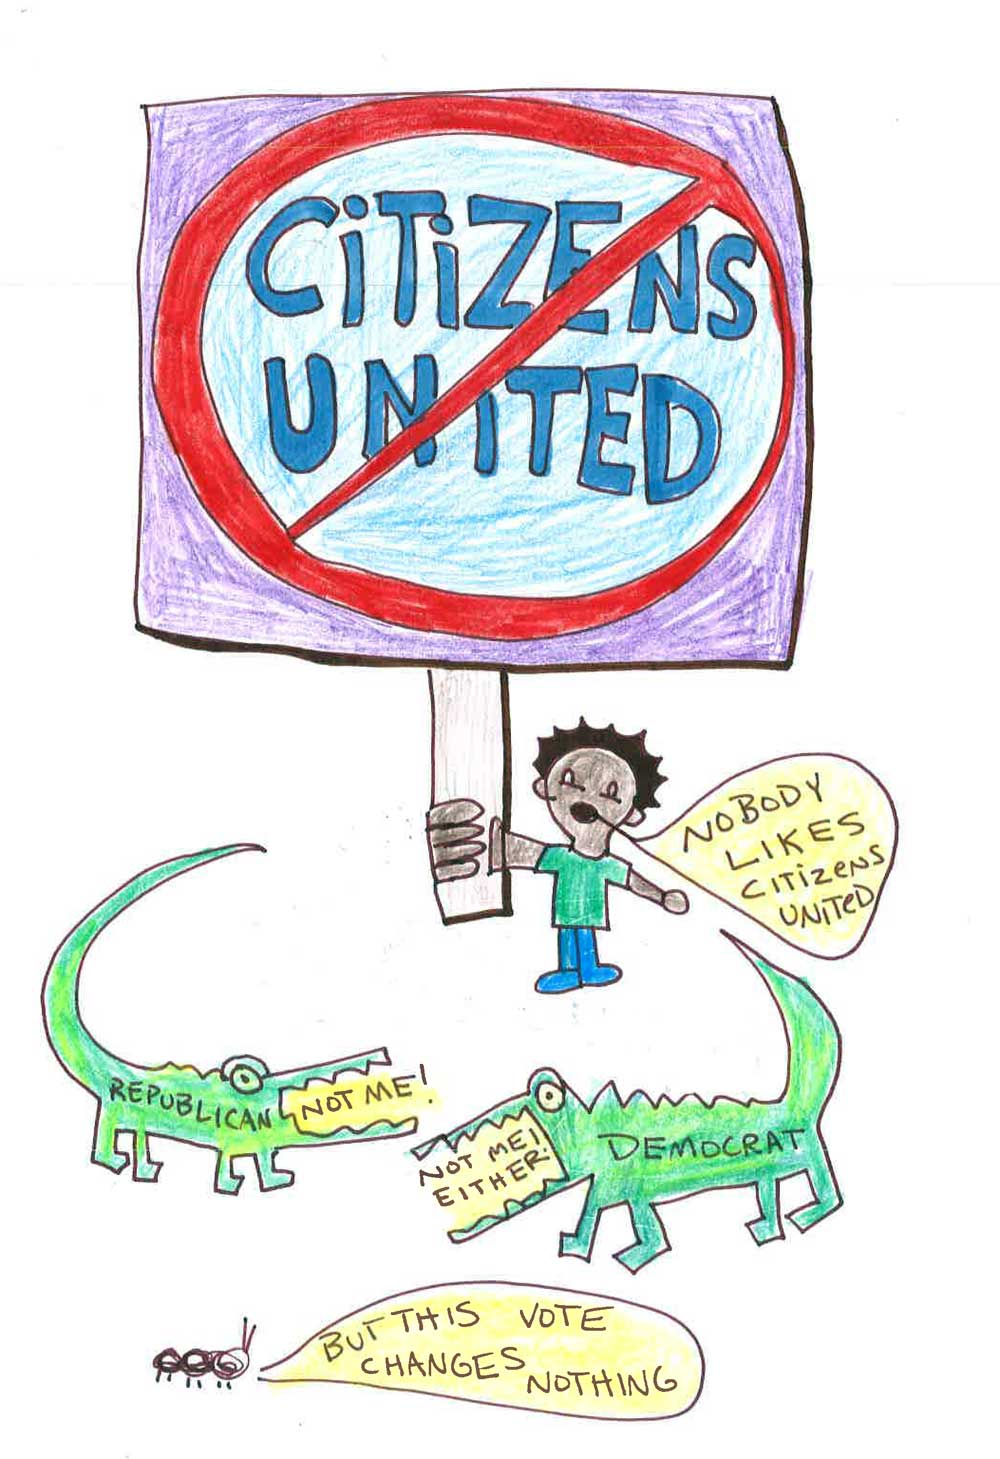 CiTiZENS
UNiTED
NOBODY
LIKES
CITIZENS
UNITED
REPUBLICAN
NOT ME!
NOT ME!
EITHER.
DEMOCRAT
BUT THIS VOTE
CHANGES
NOTHING